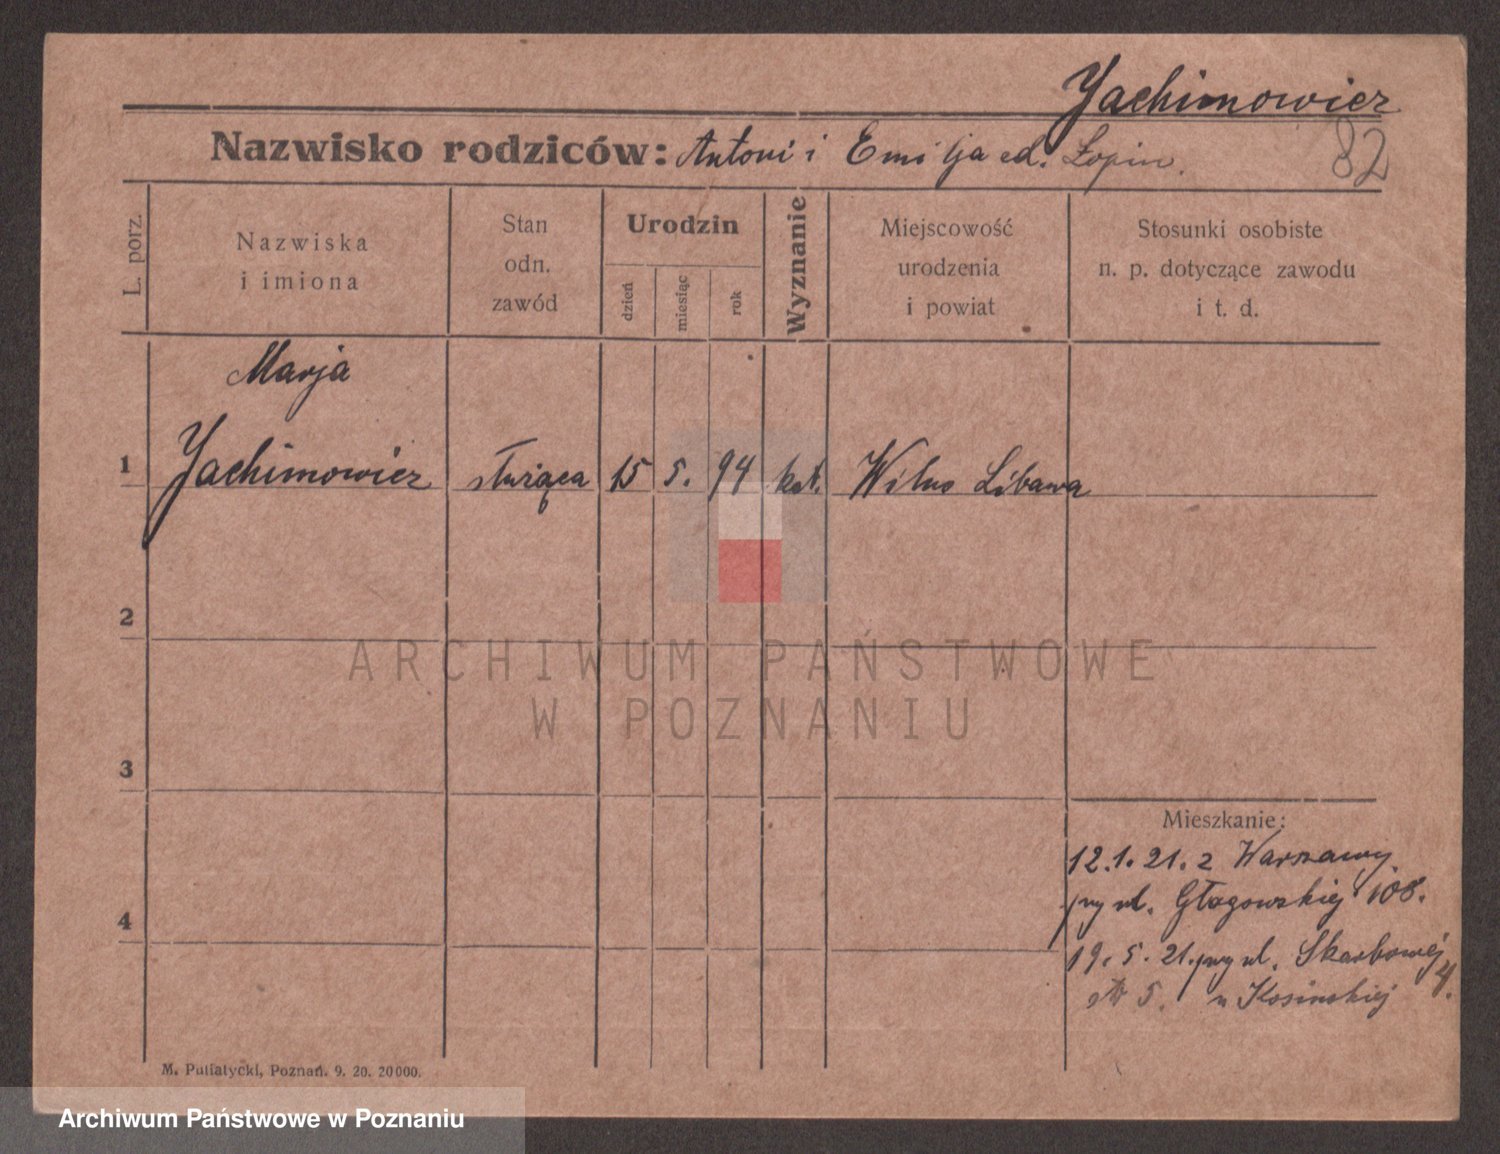 Jachimowicz
Nazwisko rodziców: Antoni i Emilja ed. Łopin.
82
L. porz.
Nazwiska
i imiona
Stan
odn.
zawód
Urodzin
dzień
miesiąc
rok
Wyznanie
Miejscowość
urodzenia
i powiat
Stosunki osobiste
n. p. dotyczące zawodu
i t. d.
Marja
1 Jachimowicz służąca 15 5. 94 kat. Wilno Libawa
2
ARCHIWUM PAŃSTWOWE
W POZNANIU
3
Mieszkanie:
12.1.21. z Warszawy
przy ul. Głogowskiej 108.
4
19. 5. 21. przy ul. Skarbowej 4.
5. u Kosińskiej
M. Putiatycki, Poznań. 9. 20. 20000.
Archiwum Państwowe w Poznaniu